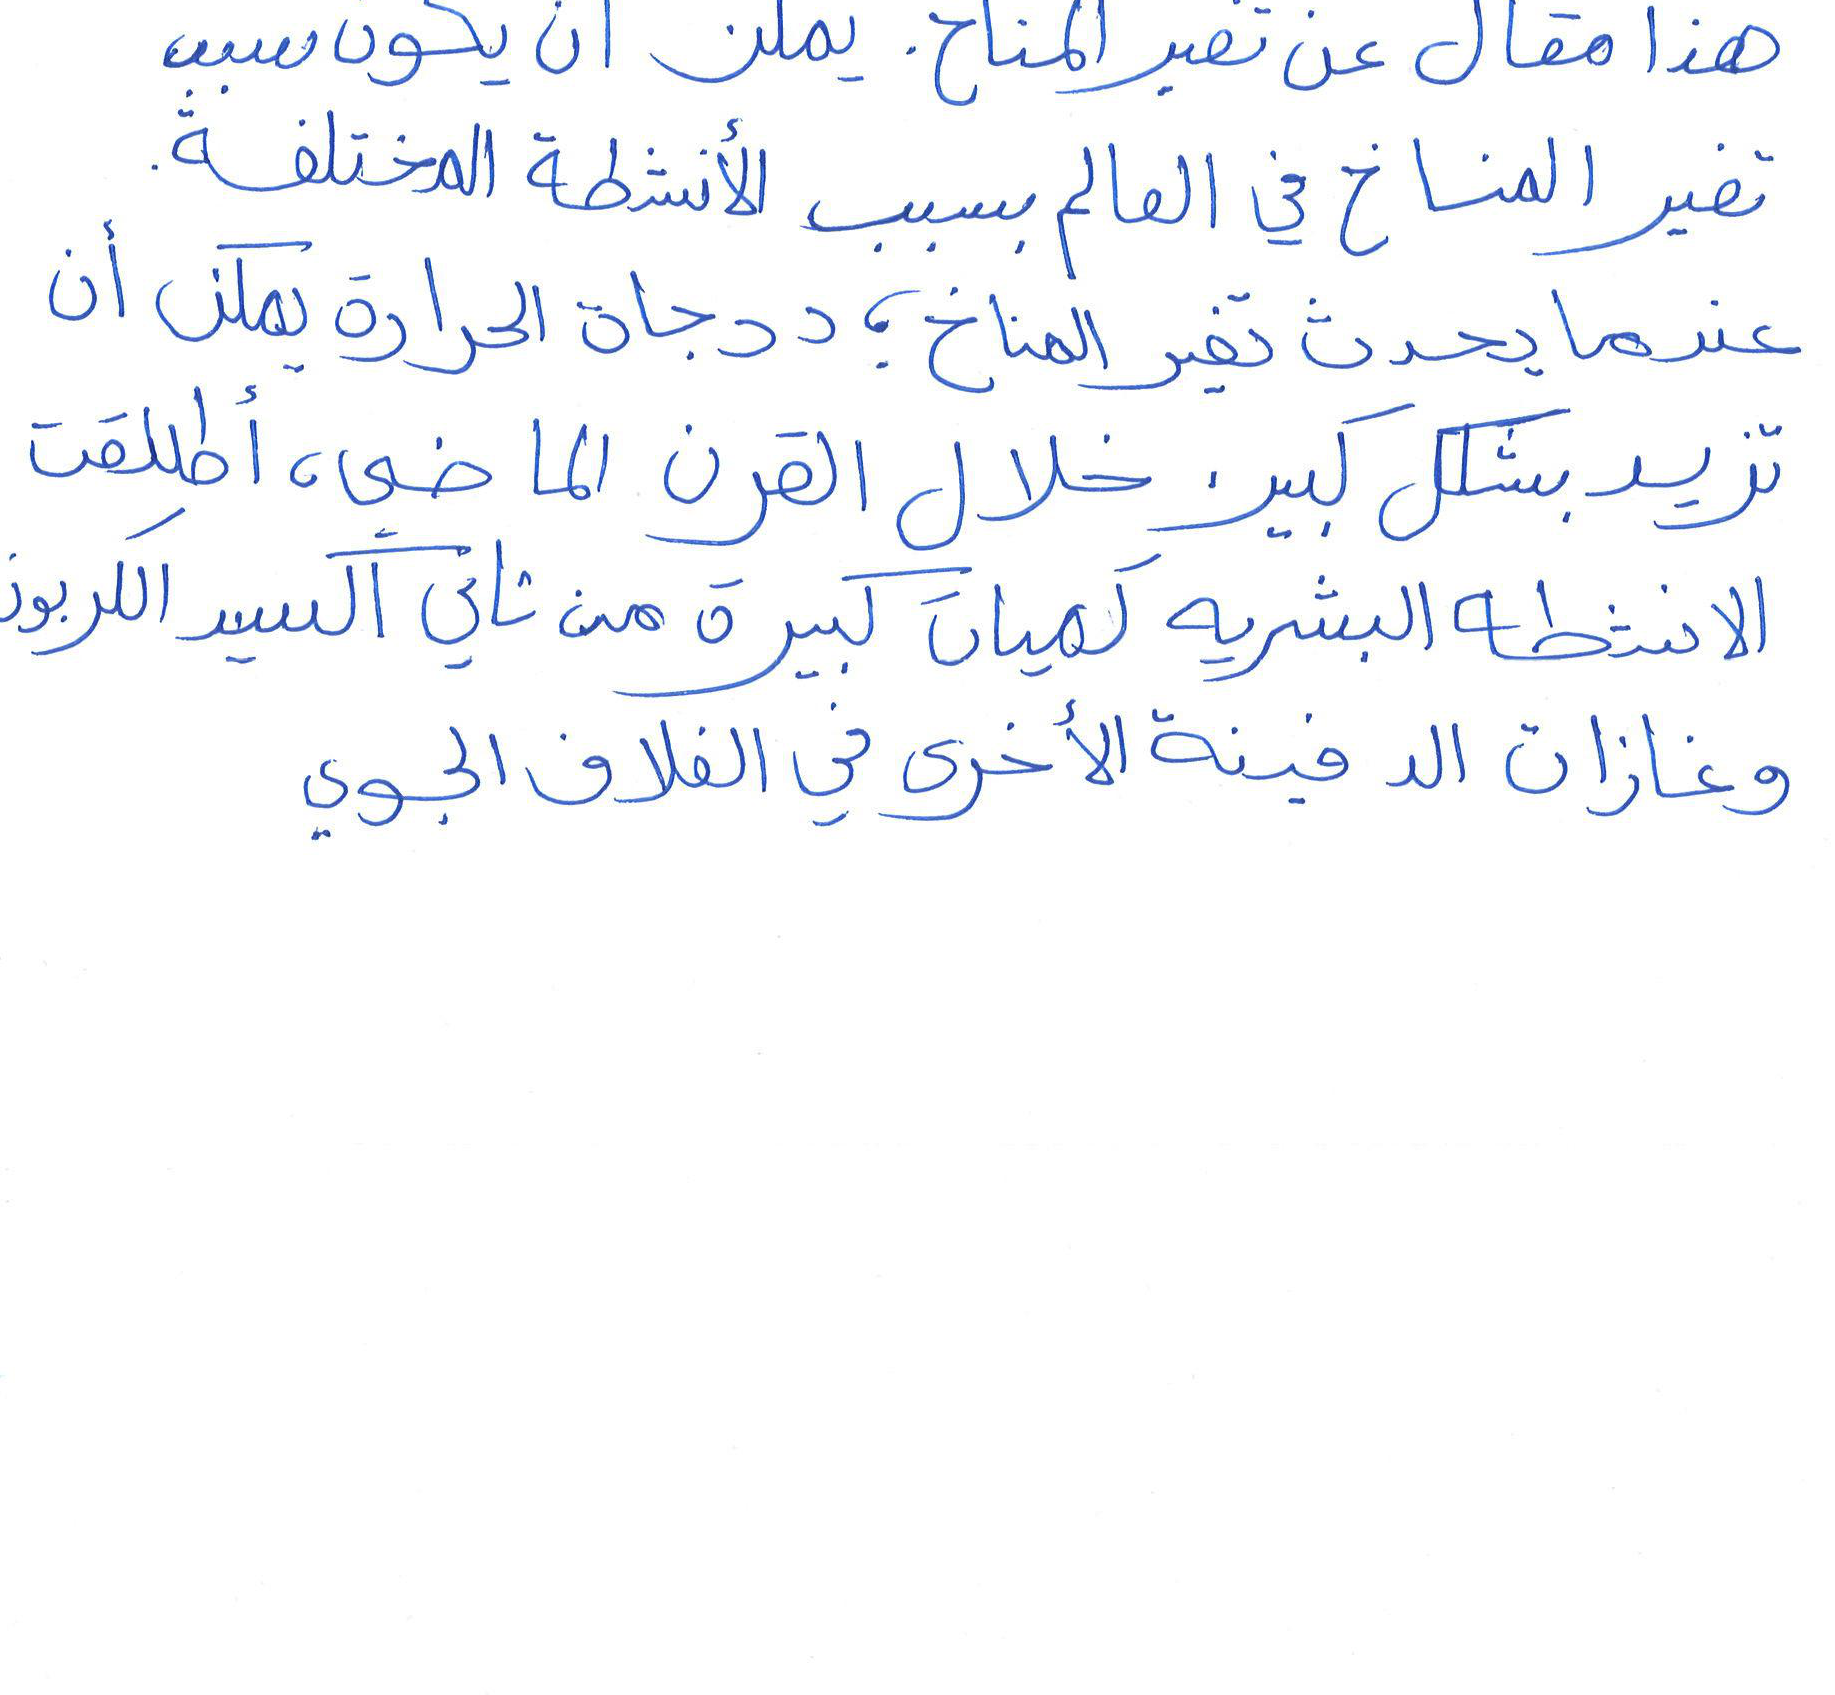 هذا مقال عن تغير المناخ. يمكن ان يكون سبب
تغير المناخ في العالم بسبب الأنشطة المختلفة.
عندما يحدث تغير المناخ، درجات الحرارة يمكن أن
تزيد بشكل كبير. خلال القرن الماضي، أطلقت
الانشطه البشريه كميات كبيرة من ثاني اكسيد الكربون
وغازات الدفينة الأخرى في الغلاف الجوي